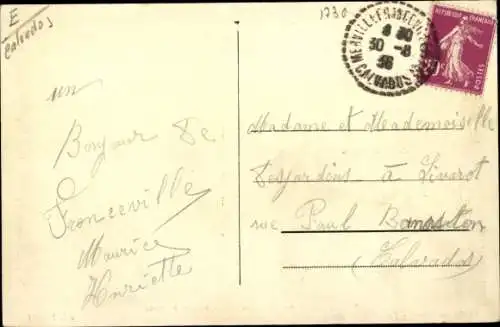 E
Calvados
1730
MERVILLE-FRANCEVILLE
8 30
30 -8
36
CALVADOS
REPUBLIQUE FRANCAISE
20c
POSTES
un
Bonjour de
Franceville
Maurice
Henriette
Madame et Mademoiselle
Desjardins à Livarot
rue Paul
(Calvados)